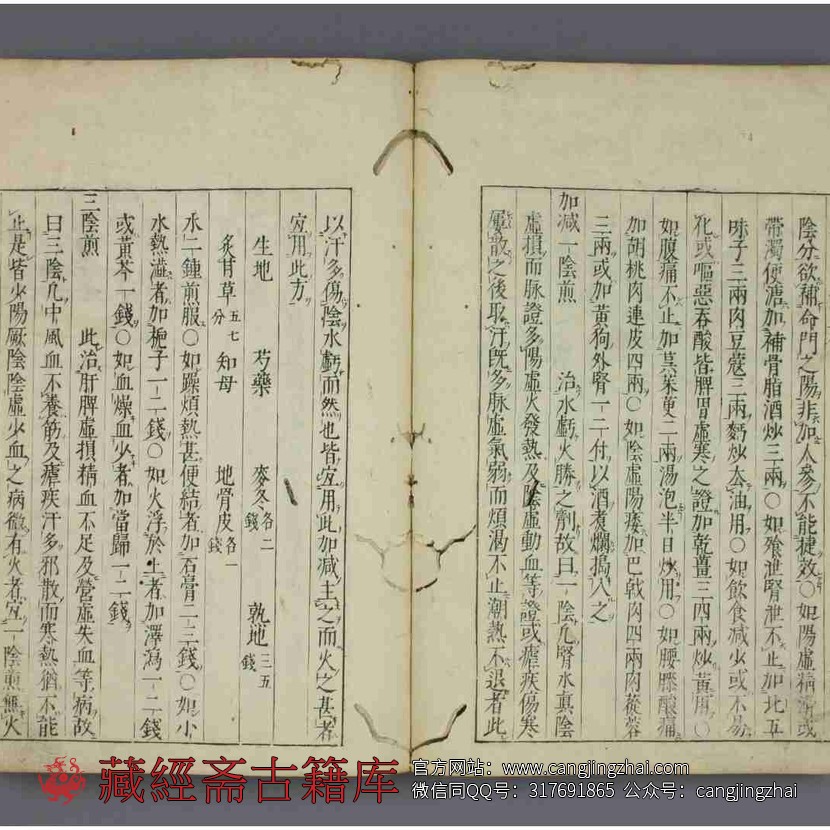 陰分欲補命門之陽非加人參不能捷效○如陽虛精滑或
帶濁便溏加補骨脂酒炒三兩○如飱泄腎泄不止加北五
味子三兩肉豆蔻三兩麪炒去油用○如飲食減少或不易
化或嘔惡吞酸皆脾胃虛寒之證加乾薑三四兩炒黃用○
如腹痛不止加吳茱萸二兩湯泡半日炒用○如腰膝酸痛
加胡桃肉連皮四兩○如陰虛陽痿加巴戟肉四兩肉蓯蓉
三兩或加黃狗外腎一二付以酒煮爛搗入之
加減一陰煎　治水虧火勝之劑故曰一陰凡腎水真陰
虛損而脉證多陽虛火發熱及陰虛動血等證或瘧疾傷寒
屢散之後取汗既多脉虛氣弱而煩渴不止潮熱不退者此
以汗多傷陰水虧而然也皆宜用此加減主之而火之甚者
宜用此方
生地　芍藥　麥冬各二錢　熟地三五錢
炙甘草五七分　知母　地骨皮各一錢
水二鍾煎服○如躁煩熱甚便結者加石膏二三錢○如小
水熱澁者加梔子一二錢○如火浮於上者加澤瀉一二錢
或黃芩一錢○如血燥血少者加當歸一二錢
三陰煎　此治肝脾虛損精血不足及營虛失血等病故
曰三陰凡中風血不養筋及瘧疾汗多邪散而寒熱猶不能
止是皆少陽厥陰陰虛少血之病微有火者宜一陰煎無火
藏經斋古籍库
官方网站：www.cangjingzhai.com
微信同QQ号：317691865 公众号：cangjingzhai